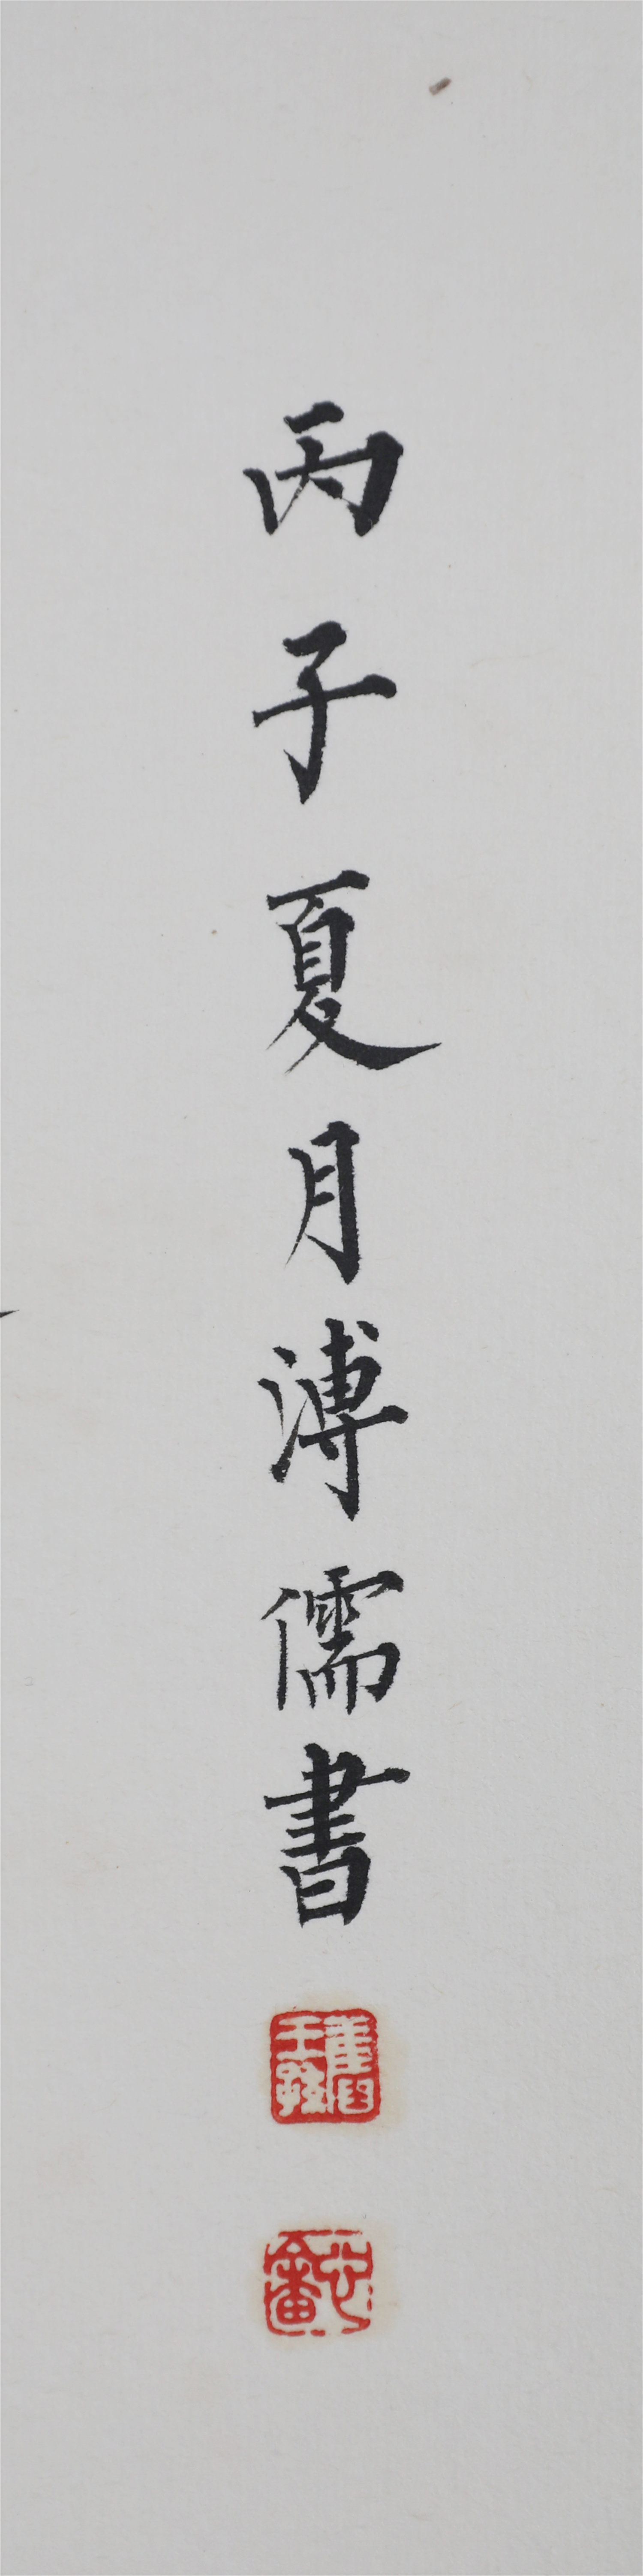 丙子夏月溥儒書
舊王孫
心畬